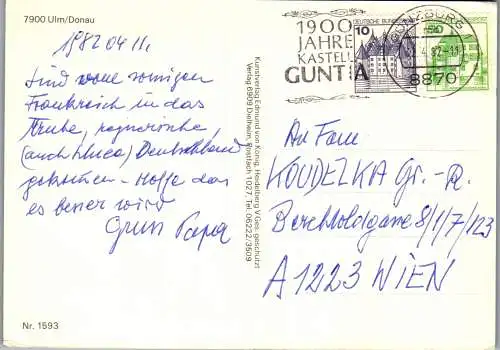 7900 Ulm/Donau
1982 04 11.
Sind vom sonnigen
Frankreich in das
Trübe, regnerische,
(auch Schnee) Deutschland
gekommen - Hoffe das
es besser wird
Gruss Papa
Nr. 1593
Kunstverlag Edmund von König, Heidelberg V Ges. geschützt
Verlag 6909 Dielheim, Postfach 1027, Tel. 06222/3509
1900
JAHRE
KASTELL
GUNTIA
DEUTSCHE BUNDESPOST
10
GÜNZBURG
4.82-11
8870
50
An Fam
KOUDELKA Gr.-R.
Berchtoldgasse 8/1/7/123
A1223 WIEN